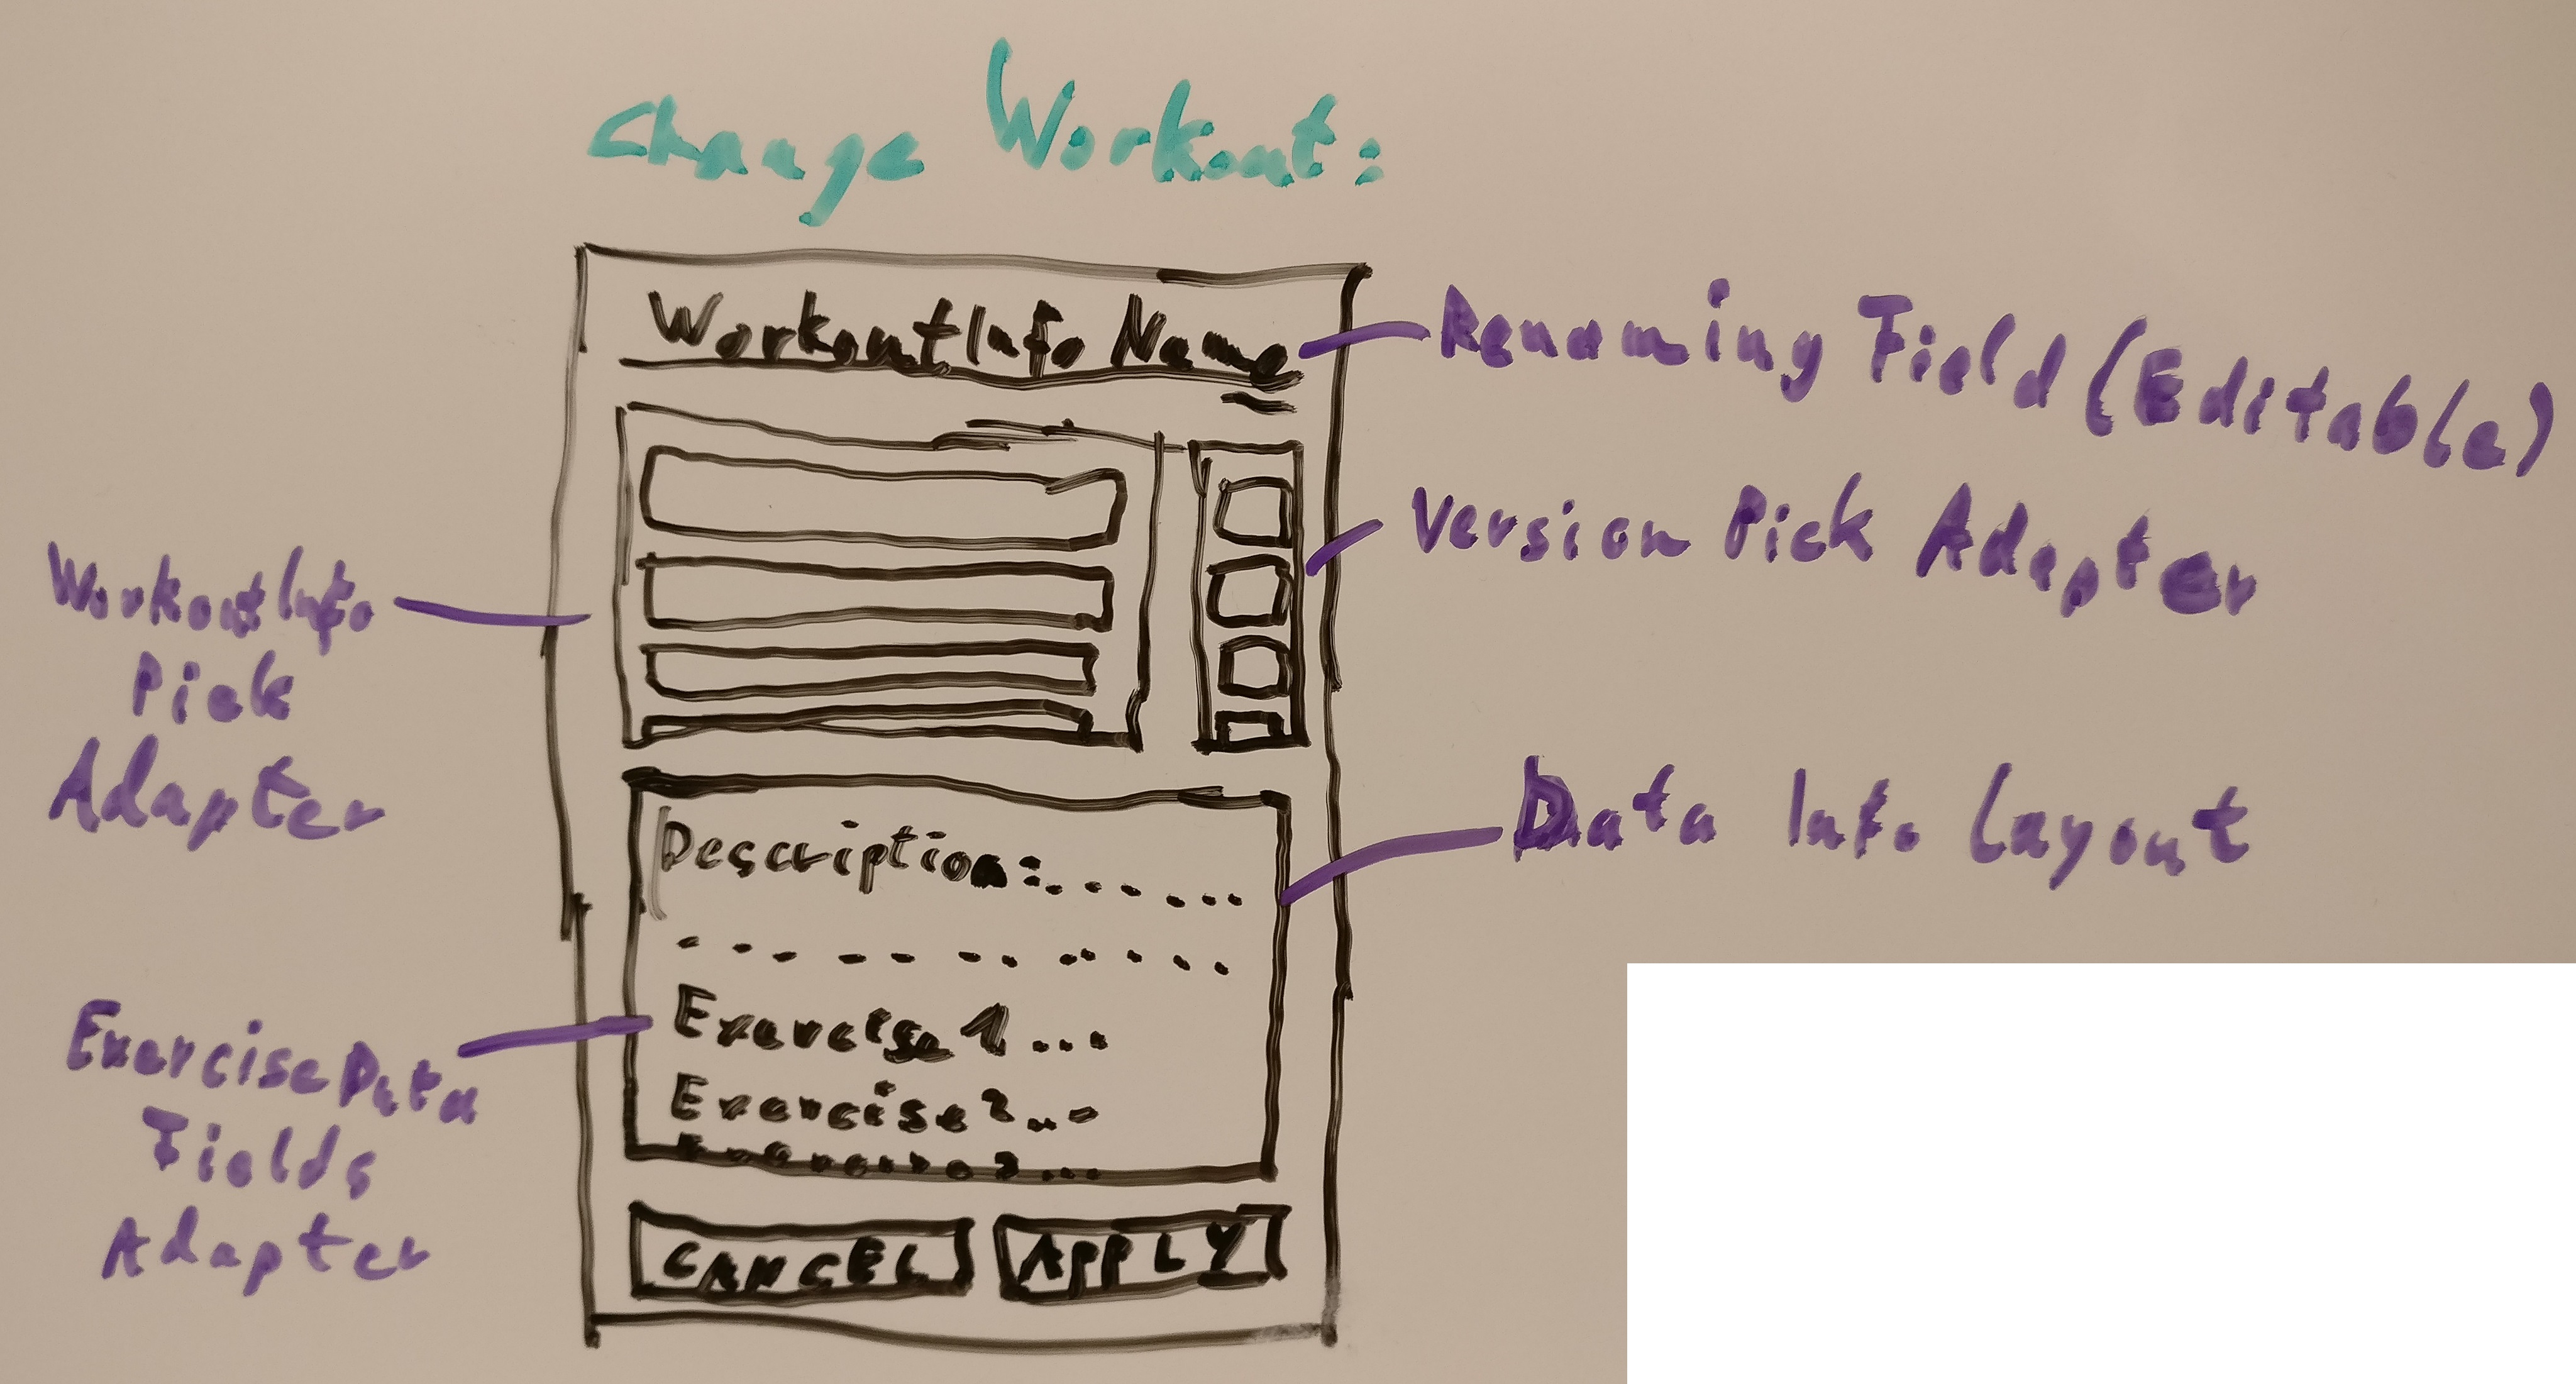 Change Workout:
WorkoutInfo Name
Renaming Field (Editable)
Version Pick Adapter
WorkoutInfo
Pick
Adapter
Data Info Layout
Description:.......
Exercise 1...
Exercise 2...
Exercise 3...
ExerciseData
Fields
Adapter
CANCEL
APPLY